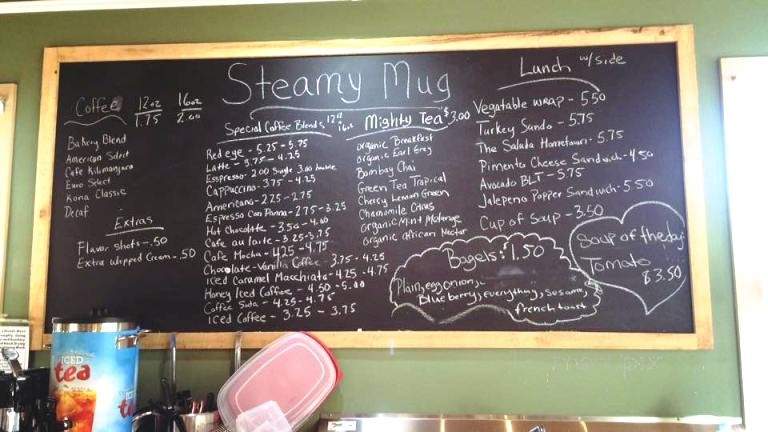 Steamy Mug
Coffee 12oz 16oz
1.75 2.00
Bakery Blend
American Select
Cafe Kilimanjaro
Euro Select
Kona Classic
Decaf
Extras
Flavor shots - .50
Extra Wipped Cream - .50
Special Coffee Blends 12oz 16oz
Red eye - 5.25 - 5.75
Latte - 3.75 - 4.25
Esspresso - 2.00 Single 3.00 double
Cappuccino - 3.75 - 4.25
Americano - 2.25 - 2.75
Espresso Con Panna - 2.75 - 3.25
Hot Chocolate - 3.50 - 4.00
Cafe au laite - 3.25 - 3.75
Cafe Mocha - 4.25 - 4.75
Chocolate-Vanilla Coffee - 3.75 - 4.25
Iced Caramel Macchiato - 4.25 - 4.75
Honey Iced Coffee - 4.50 - 5.00
Coffee Soda - 4.25 - 4.75
Iced Coffee - 3.25 - 3.75
Mighty Tea $3.00
Organic Breakfast
Organic Earl Grey
Bombay Chai
Green Tea Tropical
Cherry Lemon Green
Chamomile Citrus
Organic Mint Melange
Organic African Nectar
Lunch w/side
Vegatable wrap - 5.50
Turkey Sando - 5.75
The Salada Hometown - 5.75
Pimento Cheese Sandwich - 4.50
Avocado BLT - 5.75
Jalepeno Popper Sandwich - 5.50
Cup of Soup - 3.50
Bagels: 1.50
Plain, egg, onion,
Blueberry, everything, Sesame,
french toast
Soup of the day
Tomato
$3.50
ICED
tea